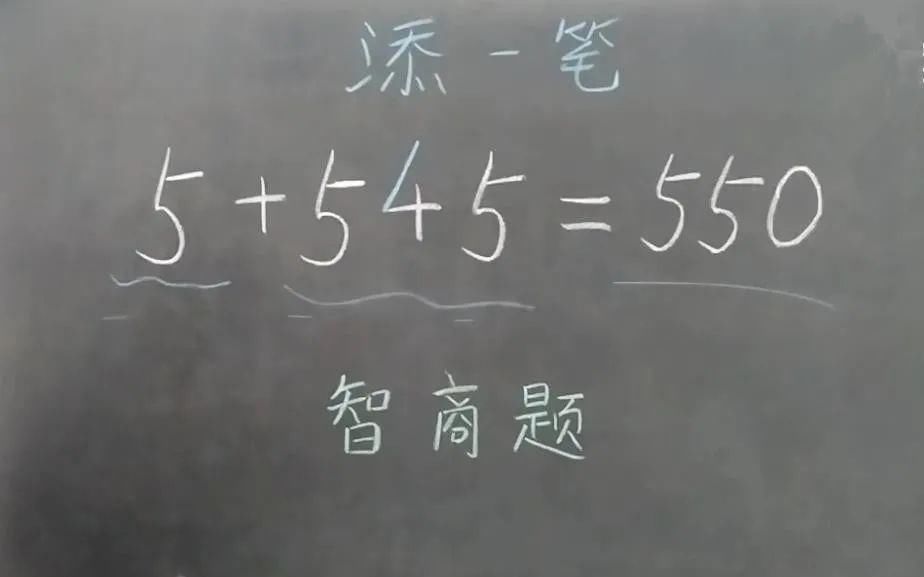 添一笔
5+545=550
智商题